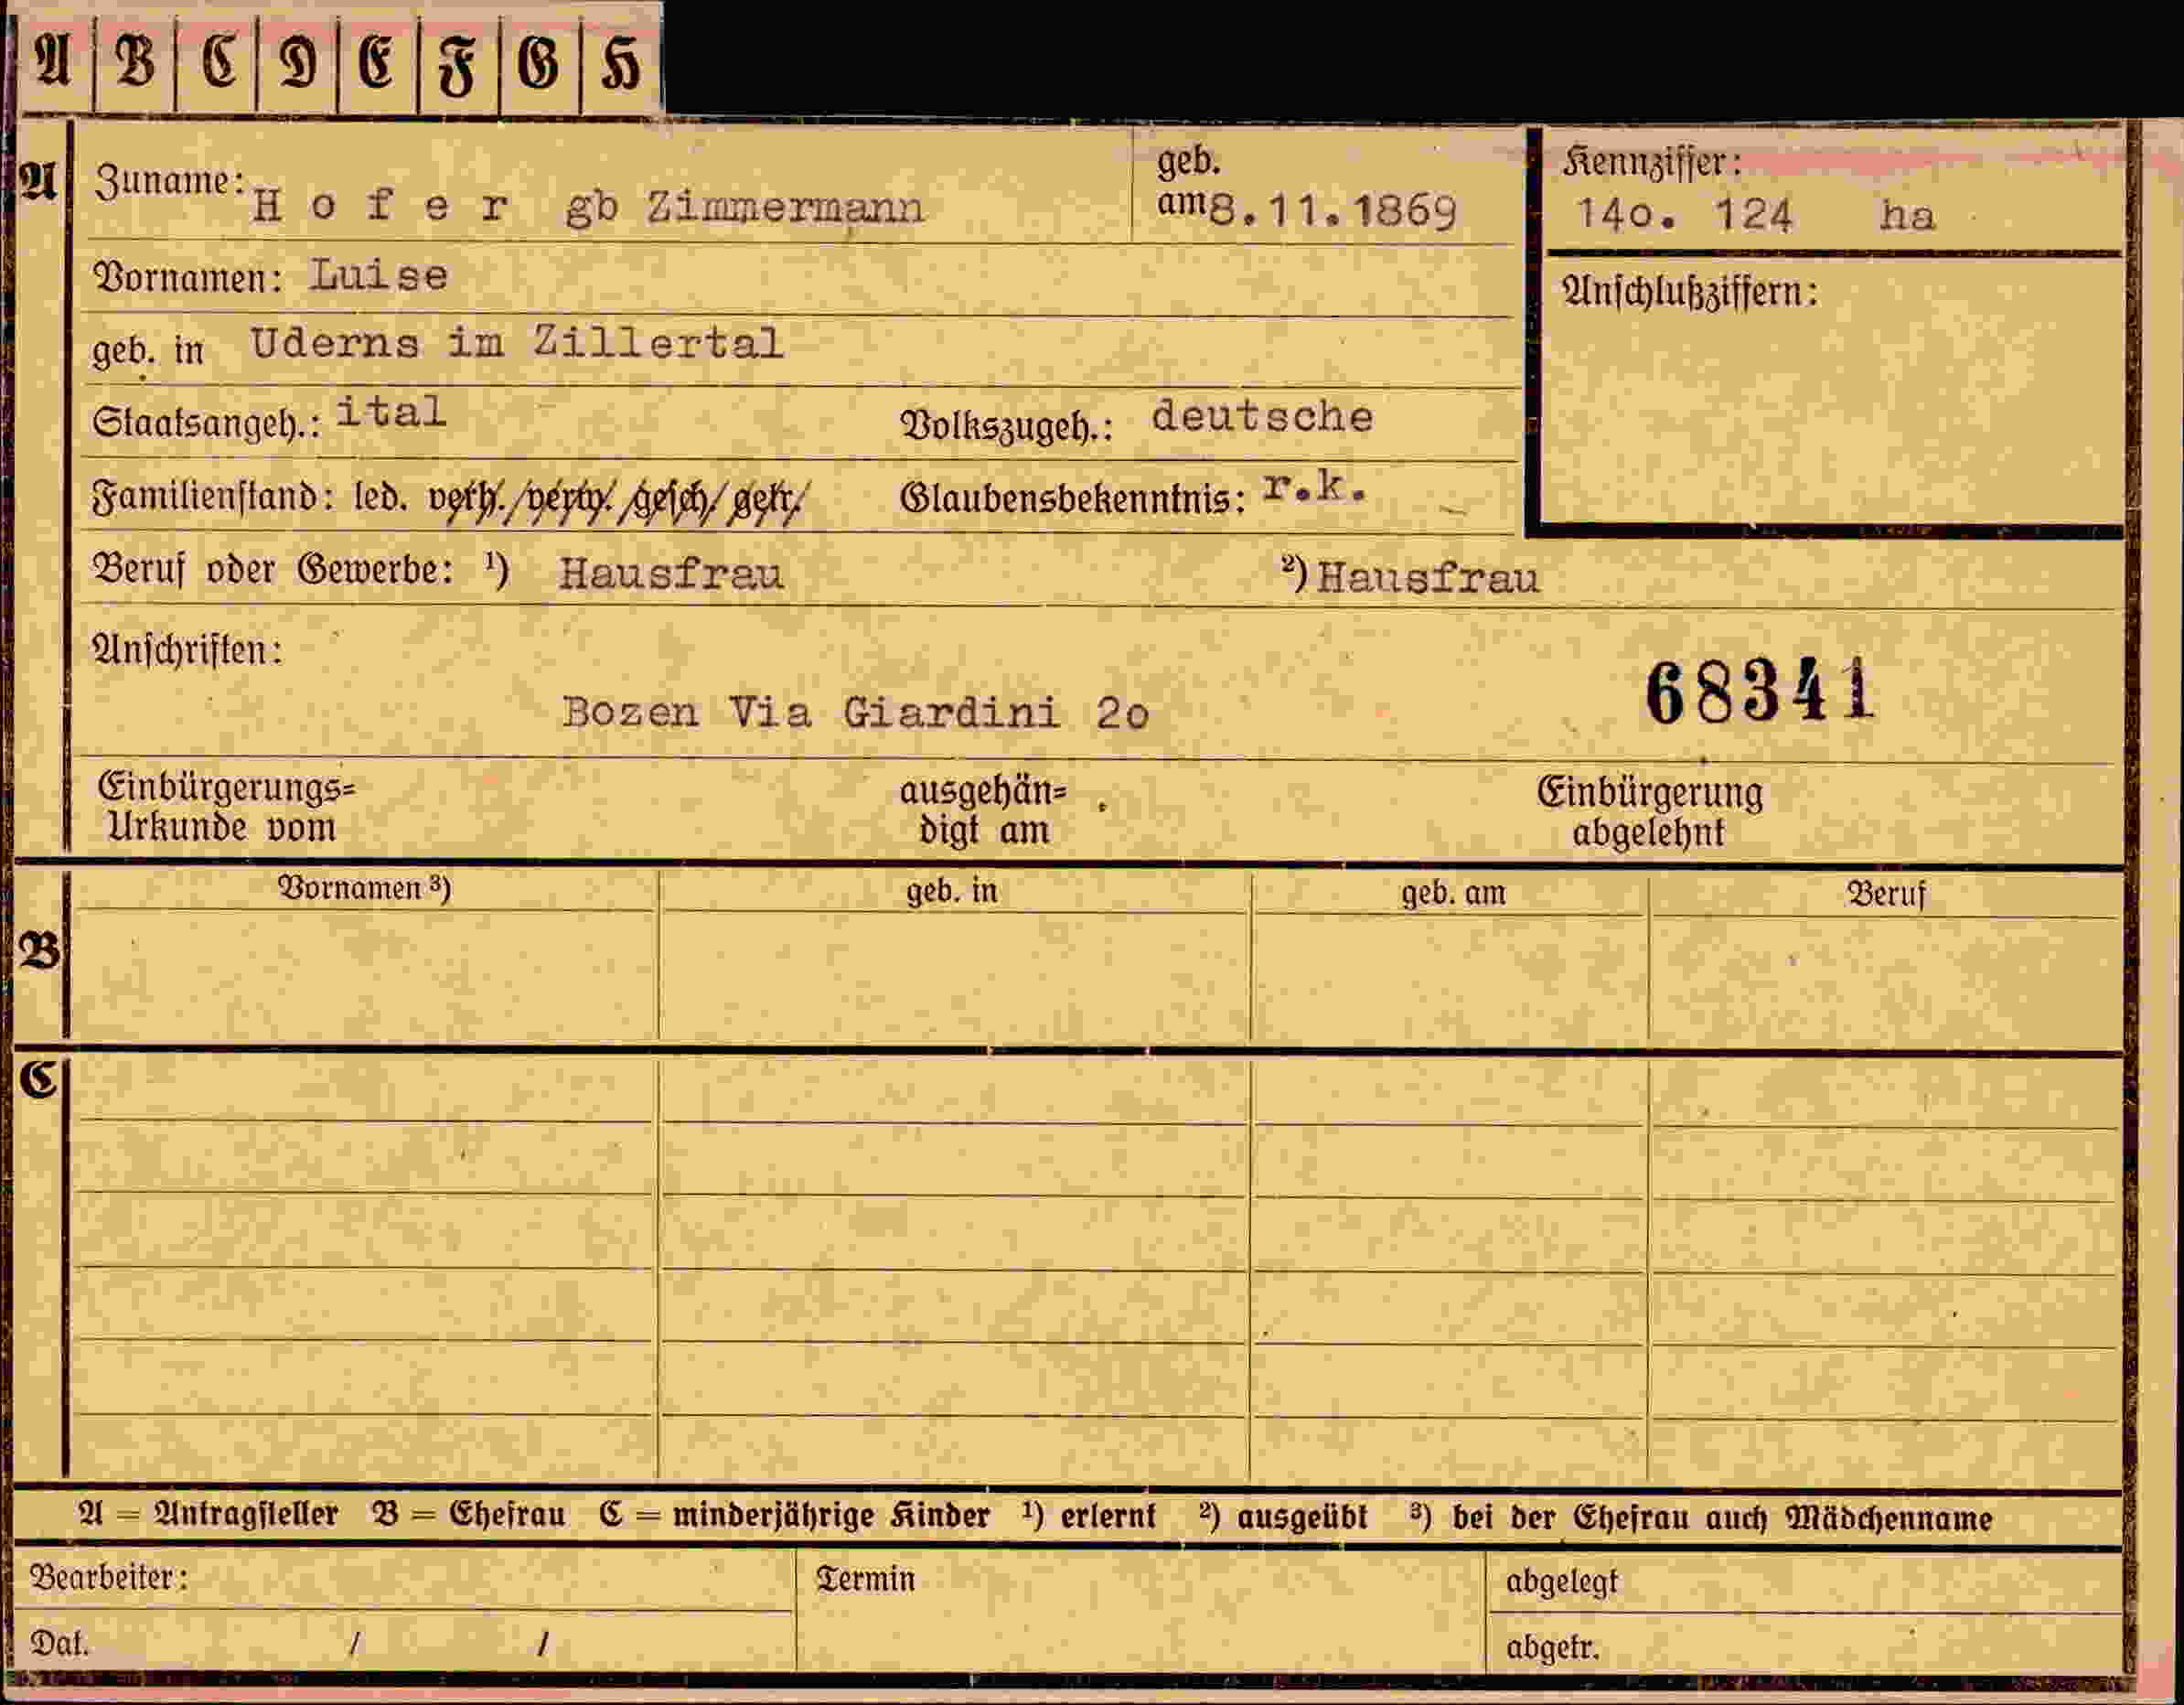 A B C D E F G H
A Zuname: Hofer gb Zimmermann geb. am 8.11.1869 Kennziffer: 14o. 124 ha
Vornamen: Luise
Anschlußziffern:
geb. in Uderns im Zillertal
Staatsangeh.: ital Volkszugeh.: deutsche
Familienstand: led. verh. verw. gesch. getr. Glaubensbekenntnis: r.k.
Beruf oder Gewerbe: ¹) Hausfrau ²) Hausfrau
Anschriften:
68341
Bozen Via Giardini 2o
Einbürgerungs= ausgehän= Einbürgerung
Urkunde vom digt am abgelehnt
Vornamen ³) geb. in geb. am Beruf
B
C
A = Antragsteller B = Ehefrau C = minderjährige Kinder ¹) erlernt ²) ausgeübt ³) bei der Ehefrau auch Mädchenname
Bearbeiter: Termin abgelegt
Dat. / / abgetr.